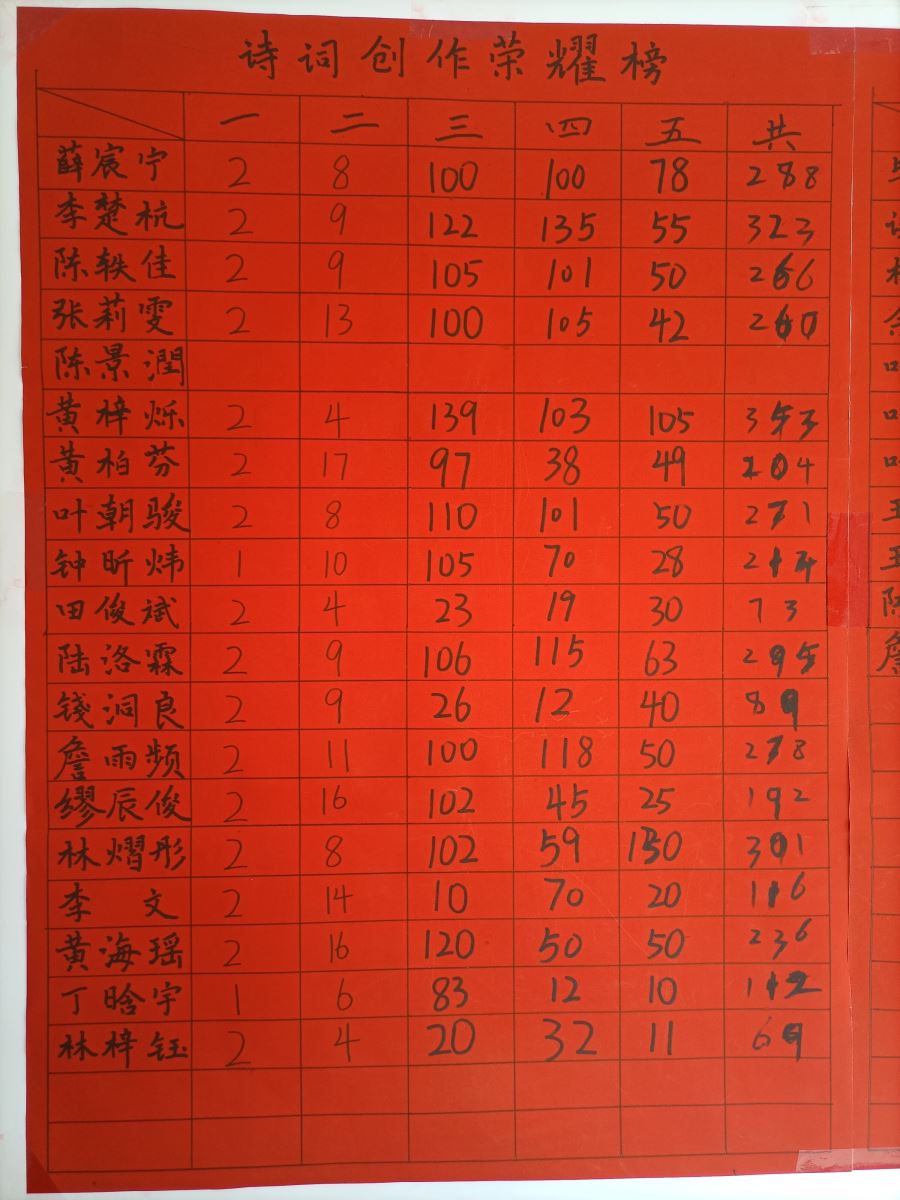 诗词创作荣耀榜
一 二 三 四 五 共
薛宸宁 2 8 100 100 78 288
李楚杭 2 9 122 135 55 323
陈轶佳 2 9 105 101 50 266
张莉雯 2 13 100 105 42 260
陈景潤
黄梓烁 2 4 139 103 105 353
黄柏芬 2 17 97 38 49 204
叶朝骏 2 8 110 101 50 271
钟昕炜 1 10 105 70 28 214
田俊斌 2 4 23 19 30 73
陆洛霖 2 9 106 115 63 295
錢洞良 2 9 26 12 40 89
詹雨频 2 11 100 118 50 278
缪辰俊 2 16 102 45 25 192
林熠彤 2 8 102 59 130 301
李文 2 14 10 70 20 116
黄海瑶 2 16 120 50 50 236
丁晗宇 1 6 83 12 10 112
林梓钰 2 4 20 32 11 69